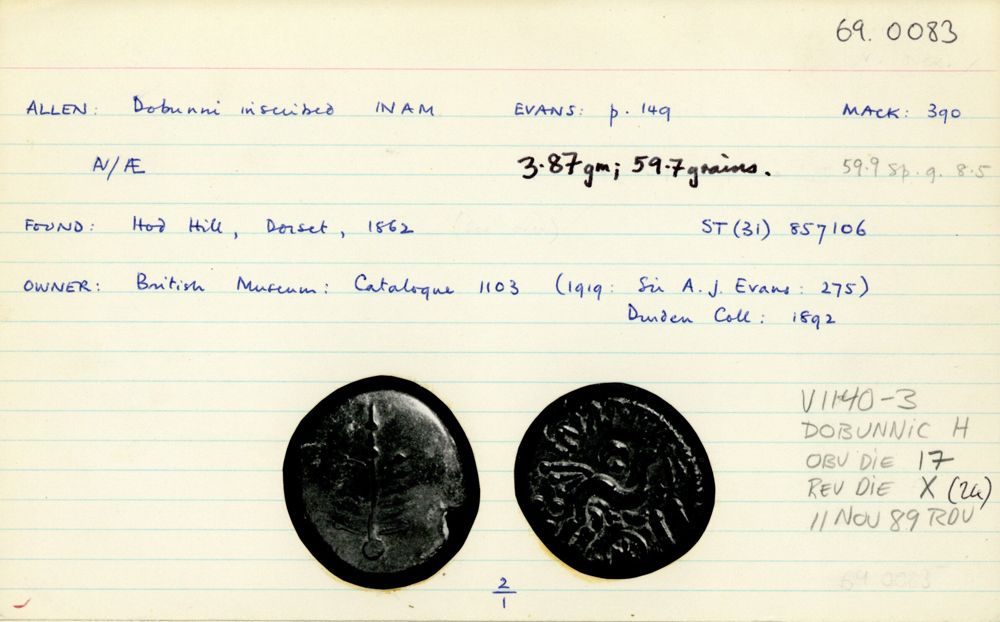 69. 0083
ALLEN: Dobunni inscribed INAM EVANS: p. 149 MACK: 390
N/Æ 3.87gm; 59.7grains. 59.9 Sp. g. 8.5
FOUND: Hod Hill, Dorset, 1862 ST(31) 857106
OWNER: British Museum: Catalogue 1103 (1919: Sir A. J. Evans: 275)
Durden Coll: 1892
V1140-3
DOBUNNIC H
OBV DIE 17
REV DIE X (2a)
11 NOV 89 RDV
2
1
69 0083